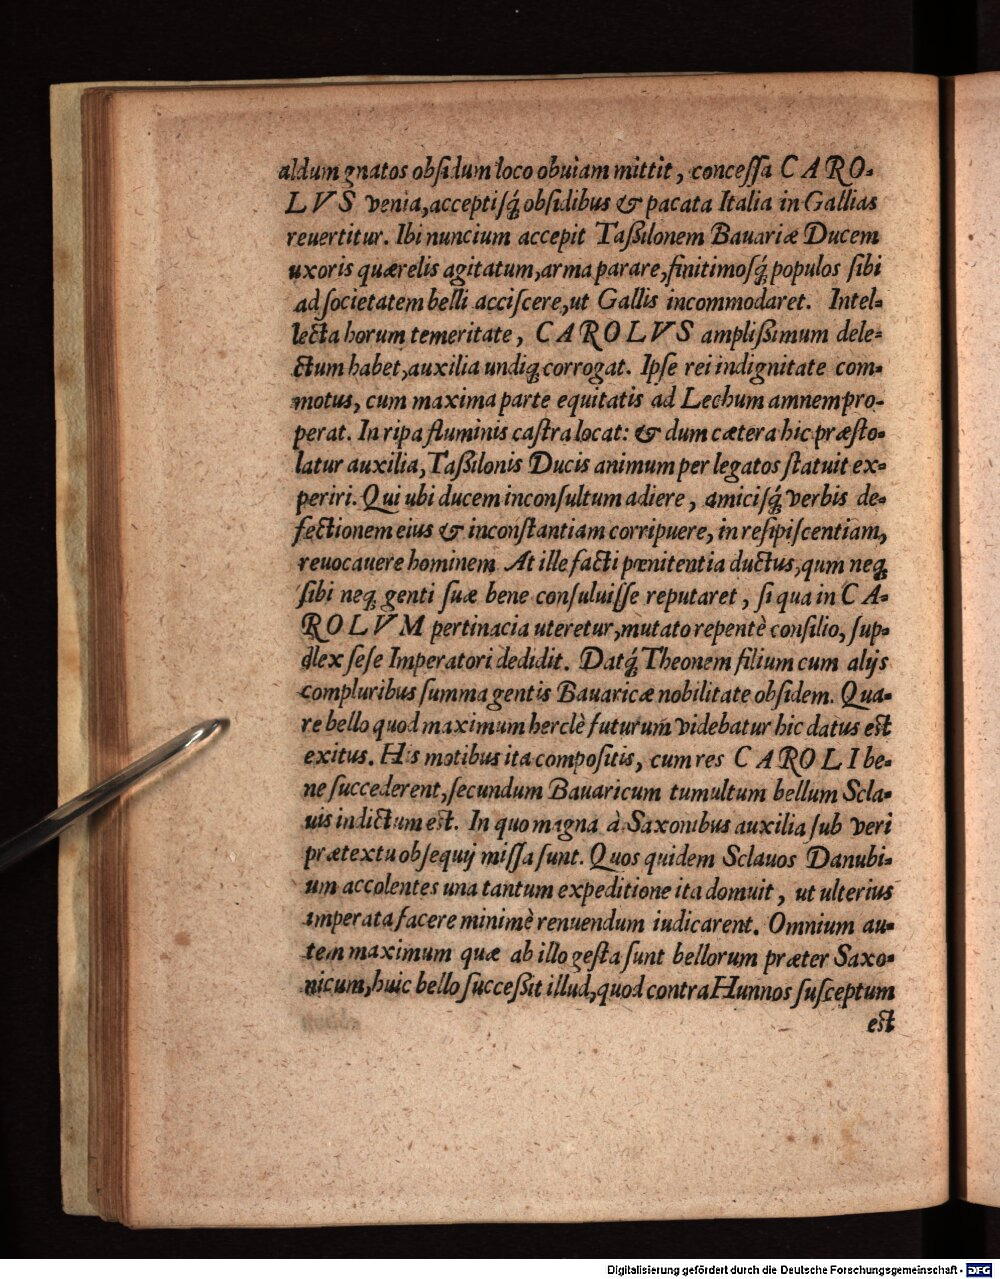 aldum gnatos obſidum loco obuiam mittit, conceſſa CARO-
LVS venia, acceptiſq́; obſidibus & pacata Italia in Gallias
reuertitur. Ibi nuncium accepit Taßilonem Bauariæ Ducem
uxoris quærelis agitatum, arma parare, finitimoſq́; populos ſibi
ad ſocietatem belli acciſcere, ut Gallis incommodaret. Intel-
lecta horum temeritate, CAROLVS amplißimum dele-
ctum habet, auxilia undiq; corrogat. Ipſe rei indignitate com-
motus, cum maxima parte equitatis ad Lechum amnem pro-
perat. In ripa fluminis caſtra locat: & dum cætera hic præſto-
latur auxilia, Taßilonis Ducis animum per legatos ſtatuit ex-
periri. Qui ubi ducem inconſultum adiere, amiciſq́; verbis de-
fectionem eius & inconſtantiam corripuere, in reſipiſcentiam,
reuocauere hominem. At ille facti pœnitentia ductus, qum neq;
ſibi neq; genti ſuæ bene conſuluiſſe reputaret, ſi qua in CA-
ROLVM pertinacia uteretur, mutato repentè conſilio, ſup-
dlex ſeſe Imperatori dedidit. Datq́; Theonem filium cum alijs
compluribus ſumma gentis Bauaricæ nobilitate obſidem. Qua-
re bello quod maximum herclè futurum videbatur hic datus est
exitus. His motibus ita compoſitis, cum res CAROLI be-
ne ſuccederent, ſecundum Bauaricum tumultum bellum Scla-
uis indictum est. In quo magna à Saxonibus auxilia ſub veri
prætextu obſequij miſſa ſunt. Quos quidem Sclauos Danubi-
um accolentes una tantum expeditione ita domuit, ut ulterius
imperata facere minimè renuendum iudicarent. Omnium au-
tem maximum quæ ab illo geſta ſunt bellorum præter Saxo-
nicum, huic bello ſucceßit illud, quod contra Hunnos ſuſceptum
est
Digitalisierung gefördert durch die Deutsche Forschungsgemeinschaft - DFG